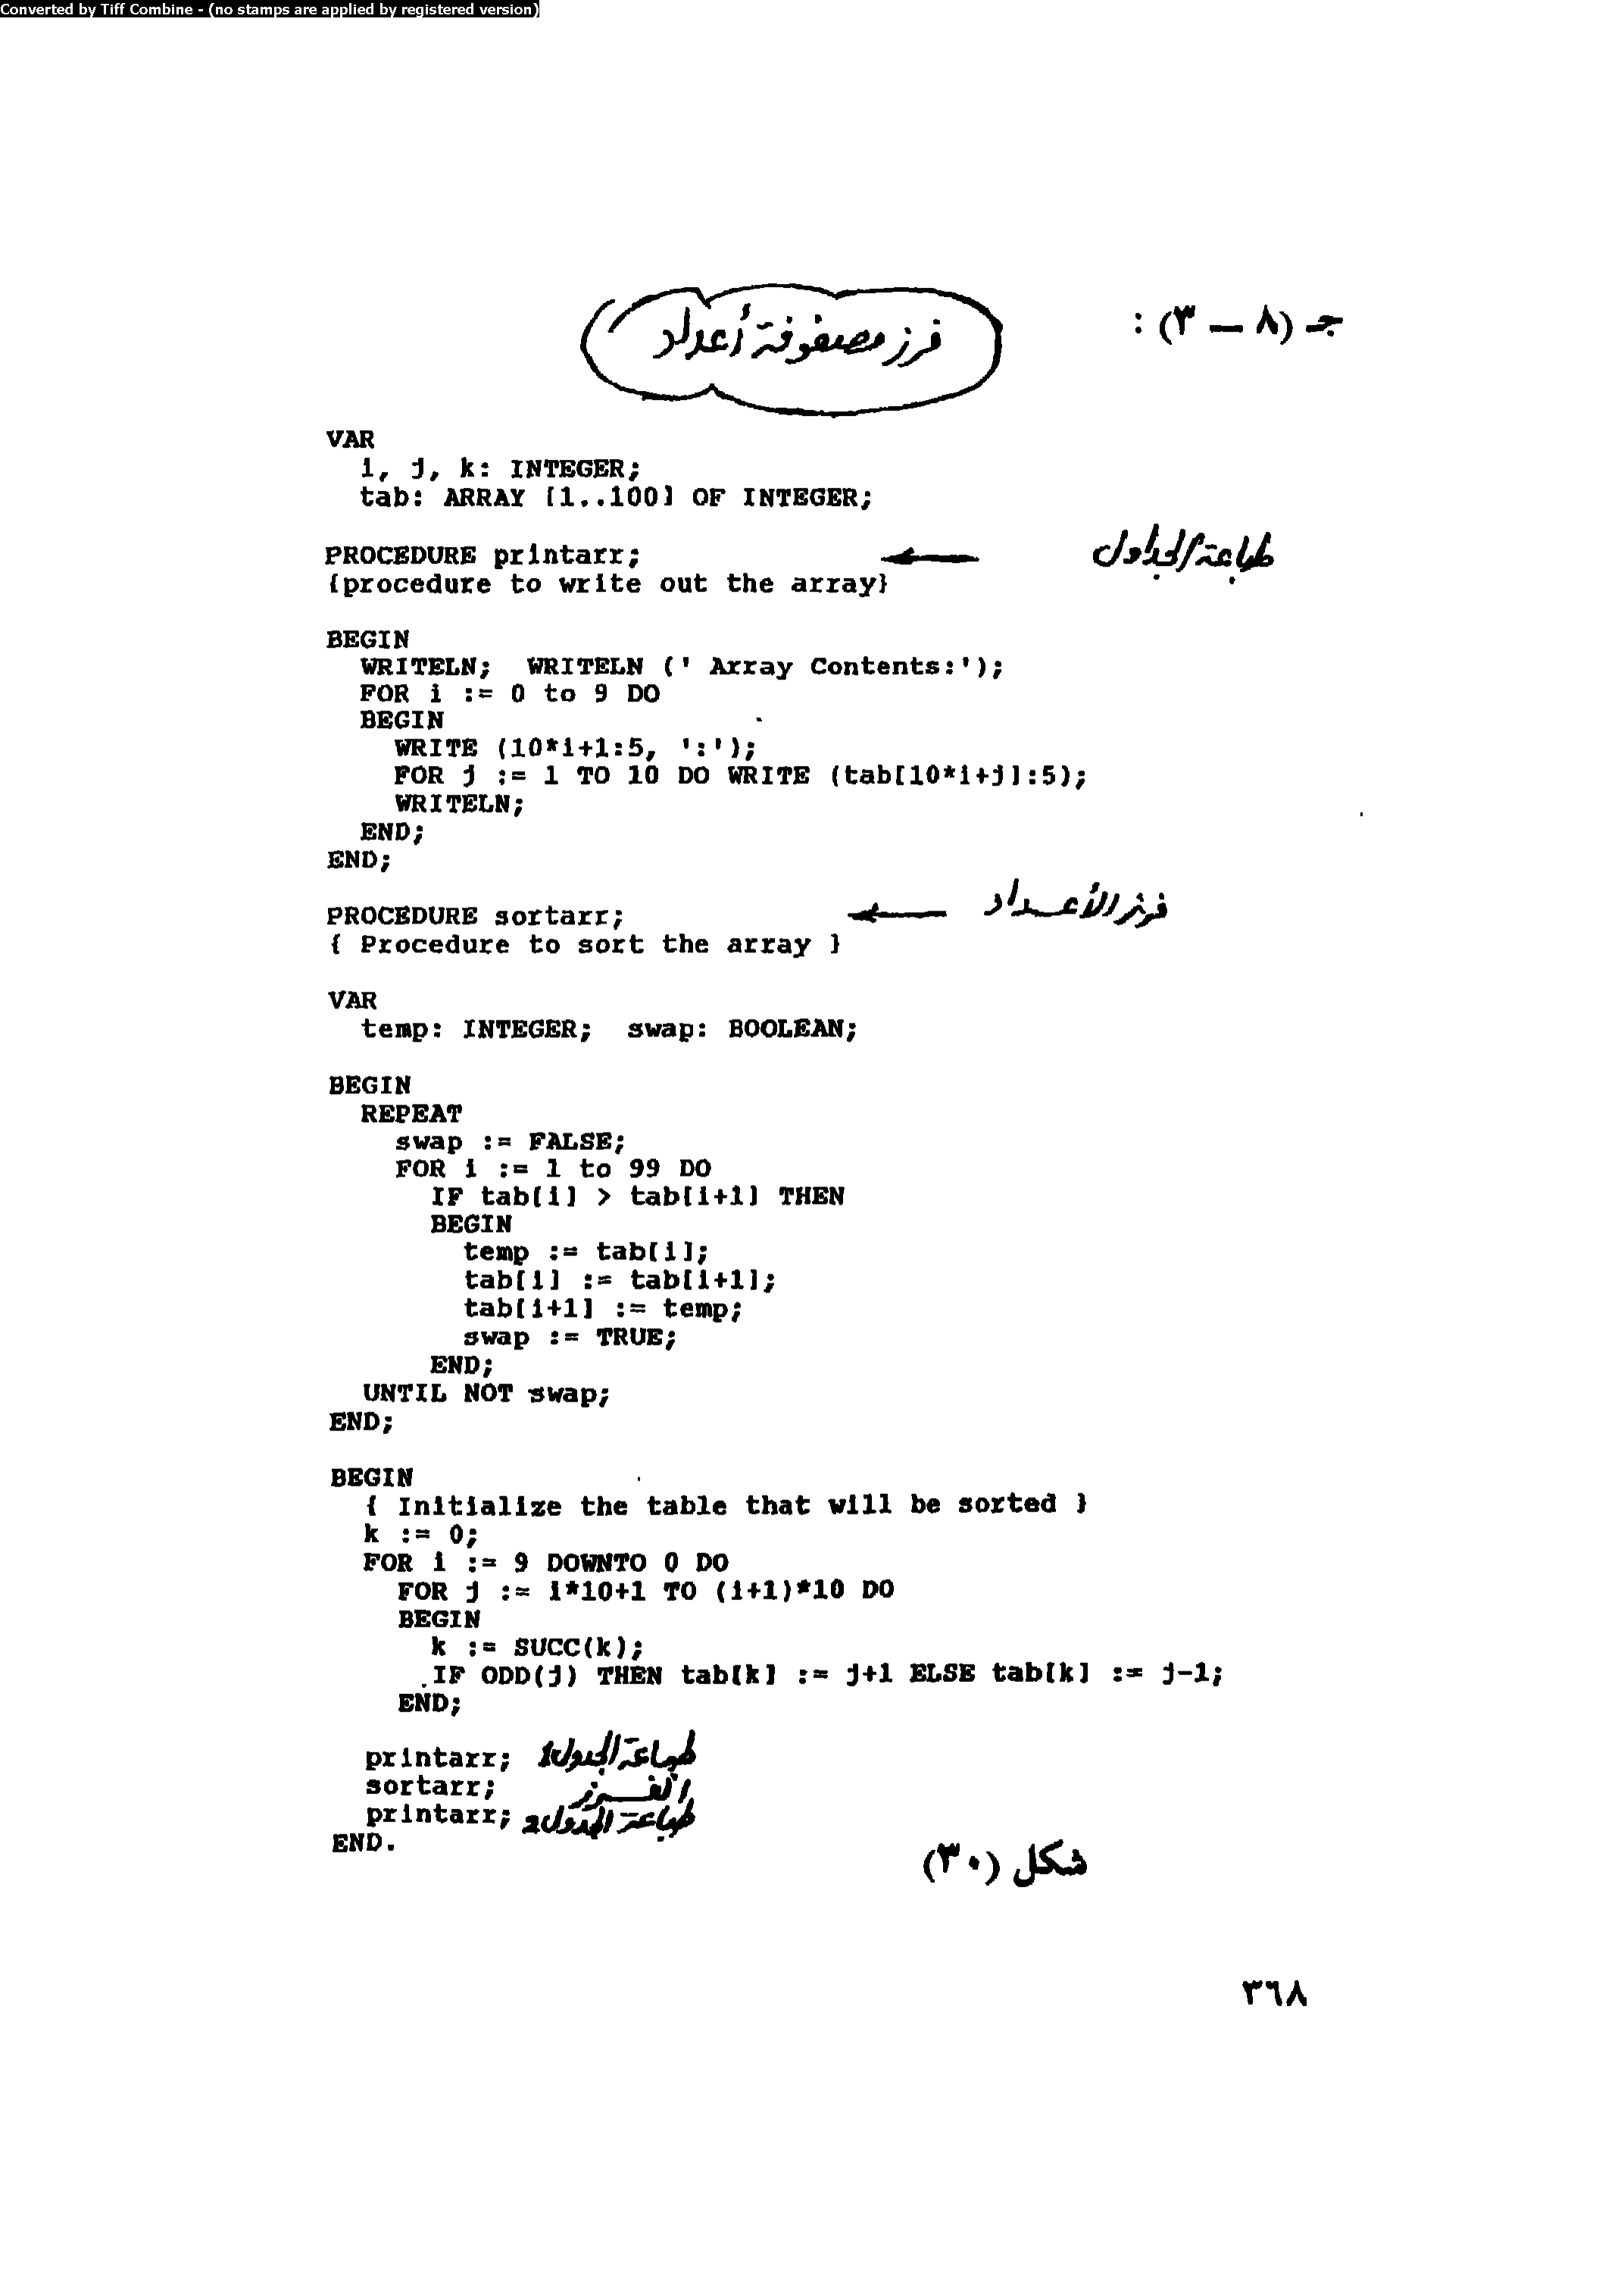 Converted by Tiff Combine - (no stamps are applied by registered version)
جـ (٨ — ٣) :
فرز مصفوفة أعداد
VAR
i, j, k: INTEGER;
tab: ARRAY [1..100] OF INTEGER;
PROCEDURE printarr; طباعة الجداول
{procedure to write out the array}
BEGIN
WRITELN; WRITELN (' Array Contents:');
FOR i := 0 to 9 DO
BEGIN
WRITE (10*i+1:5, ':');
FOR j := 1 TO 10 DO WRITE (tab[10*i+j]:5);
WRITELN;
END;
END;
PROCEDURE sortarr; فرز الأعداد
{ Procedure to sort the array }
VAR
temp: INTEGER; swap: BOOLEAN;
BEGIN
REPEAT
swap := FALSE;
FOR i := 1 to 99 DO
IF tab[i] > tab[i+1] THEN
BEGIN
temp := tab[i];
tab[i] := tab[i+1];
tab[i+1] := temp;
swap := TRUE;
END;
UNTIL NOT swap;
END;
BEGIN
{ Initialize the table that will be sorted }
k := 0;
FOR i := 9 DOWNTO 0 DO
FOR j := i*10+1 TO (i+1)*10 DO
BEGIN
k := SUCC(k);
IF ODD(j) THEN tab[k] := j+1 ELSE tab[k] := j-1;
END;
printarr; طباعة الجدول 1
sortarr; الفرز
printarr; طباعة الجدول 2
END.
شكل (٣٠)
٣٦٨